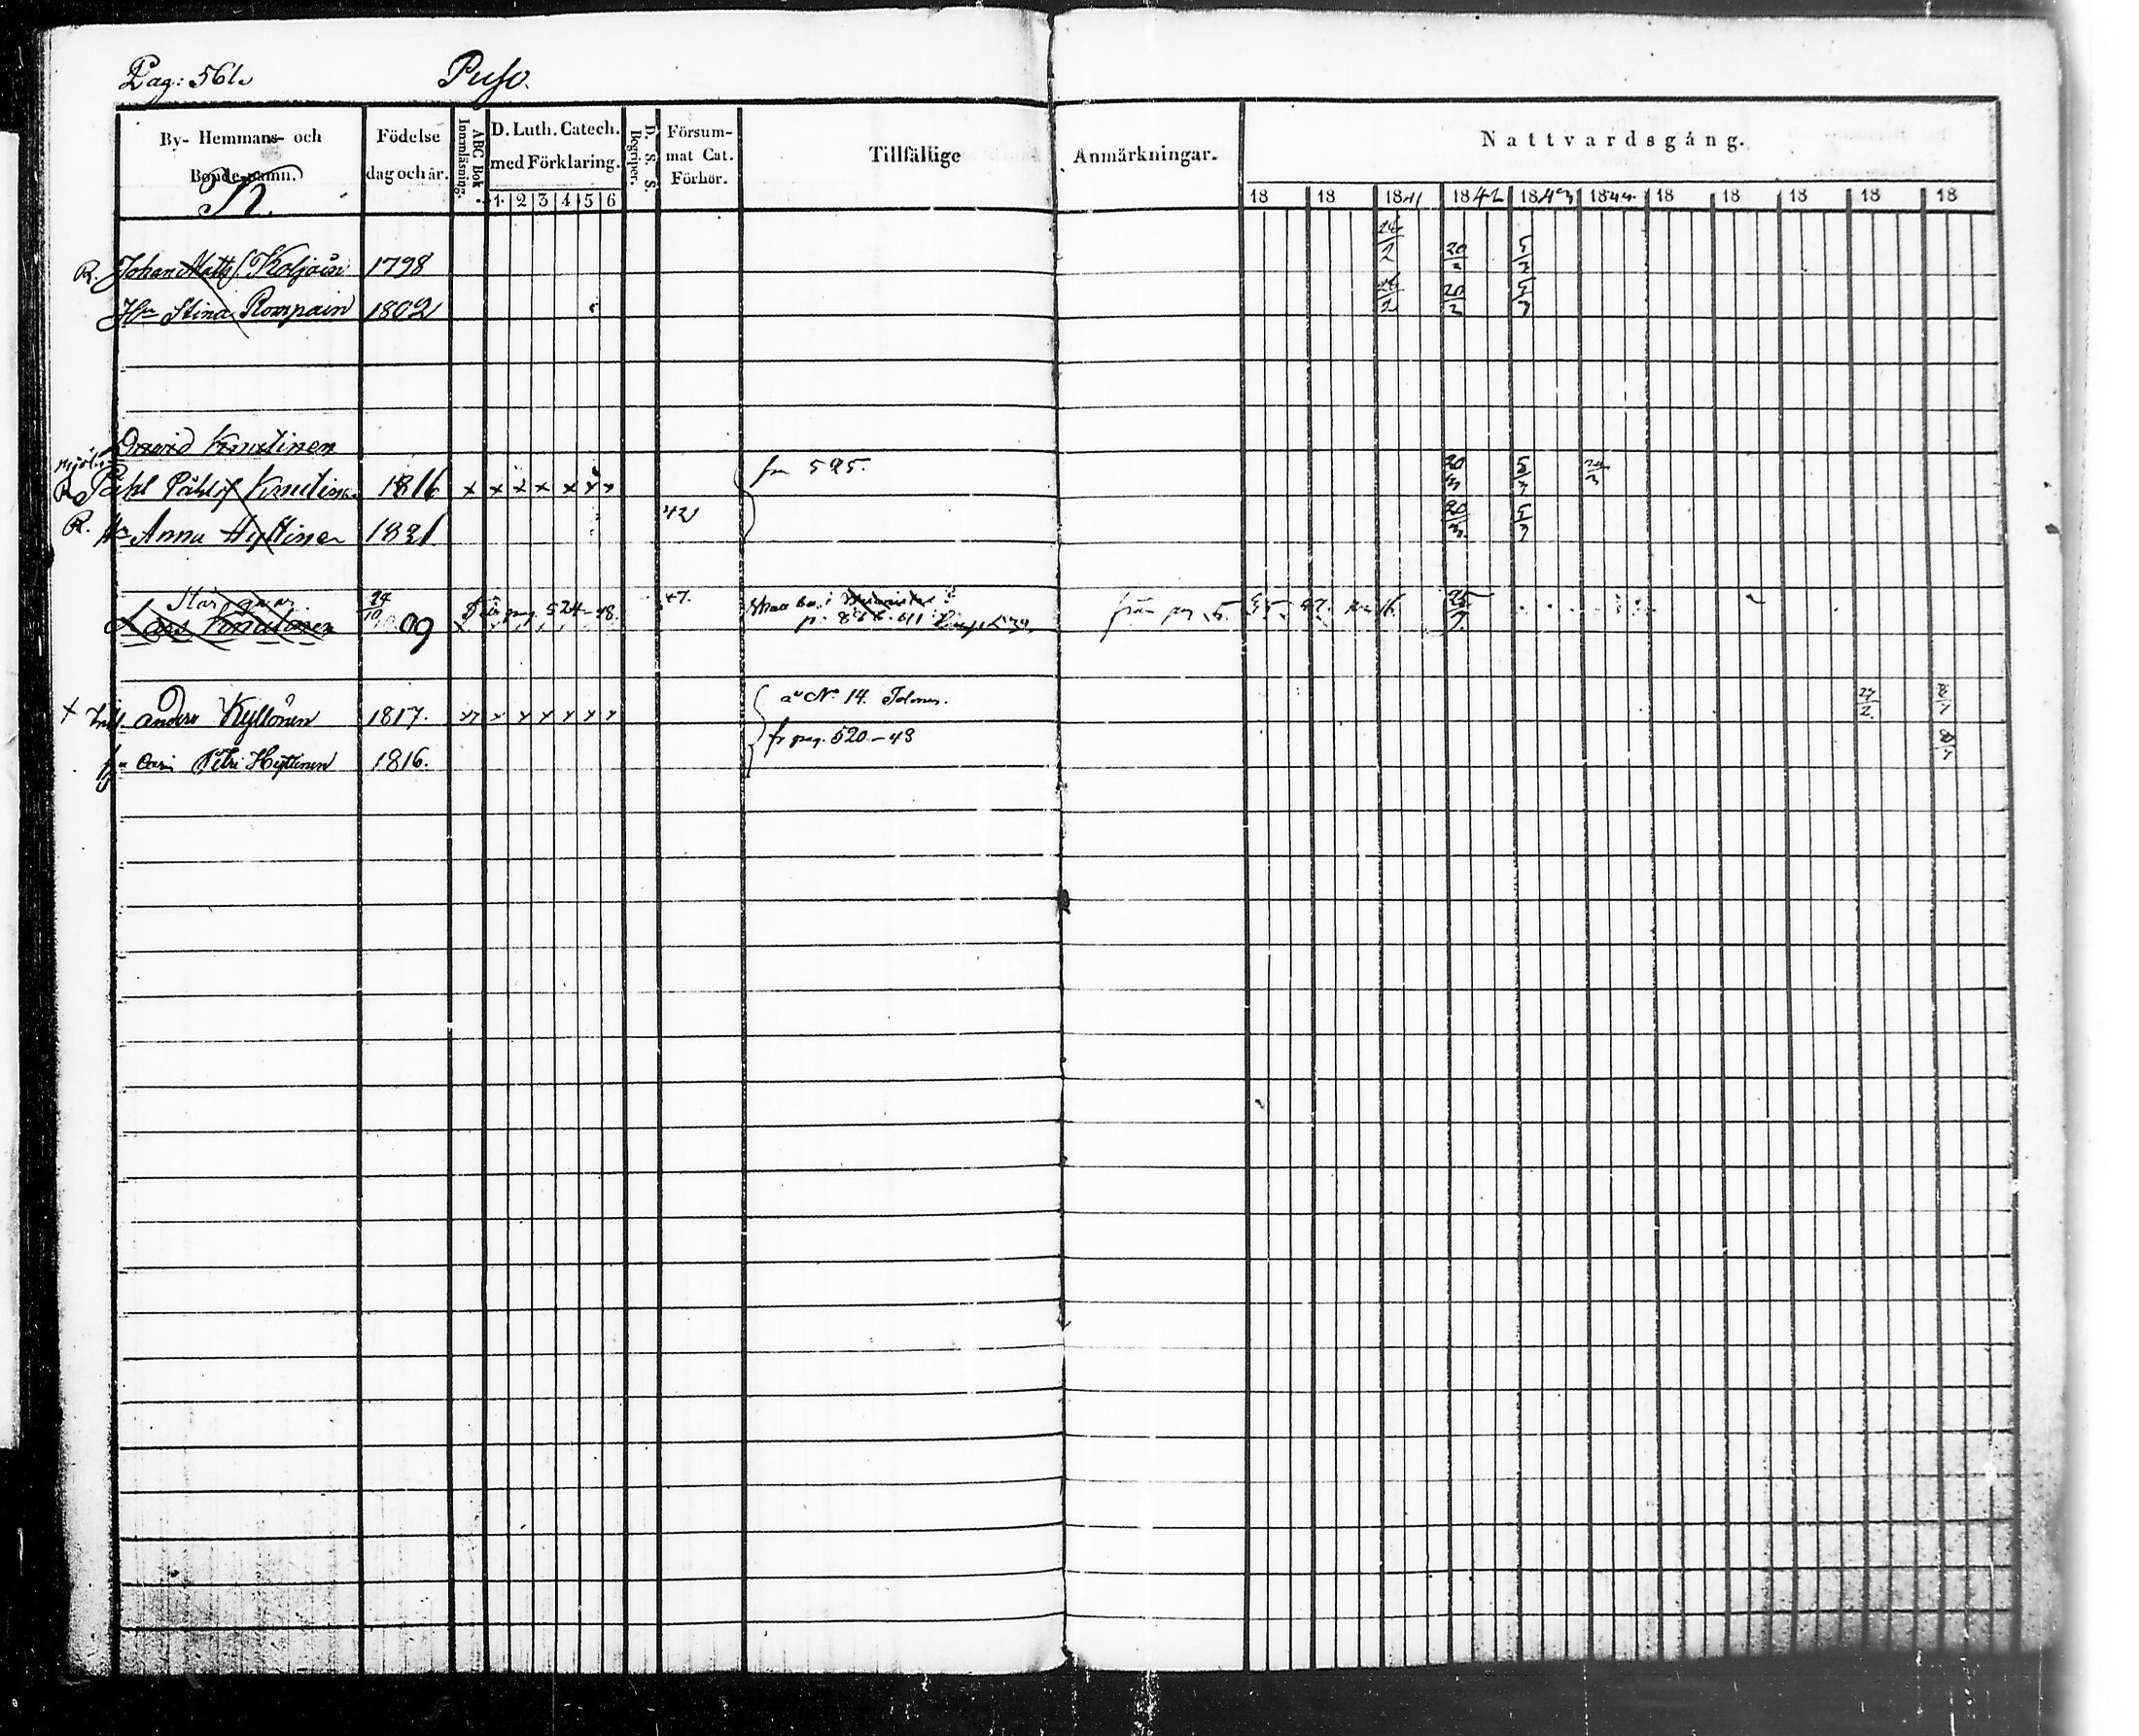 Pag: 561. Puso.
By- Hemmans- och Bonde-namn.
Födelse dag och år.
ABC Bok. Innanläsning.
D. Luth. Catech. med Förklaring.
1 2 3 4 5 6
D. S. S. Begriper.
Försum- mat Cat. Förhör.
Tillfällige Anmärkningar.
Nattvardsgång.
18 18 1841 1842 1843 1844 18 18 18 18 18
K.
R. Johan Matts Koljoin 1798 24/2 20/3 5/3
Hu Stina Rompain 1802 24/2 20/3 5/3
David Knutinen
R Påhl Påhlsf Knutinen 1816 x x x x x x x fr 525. 20/3 5/3 24/3
R. Hu Anna Hyttinen 1821 42 20/3 5/3
Lars Knutinen 24/10 09 pag. 524-48. 47. Skall bo i från pag 25/7
x Anders Kyllönen 1817. x x x x x x x a No 14.
fr pag. 520-43
Hu Carin Petri Hyttinen 1816.